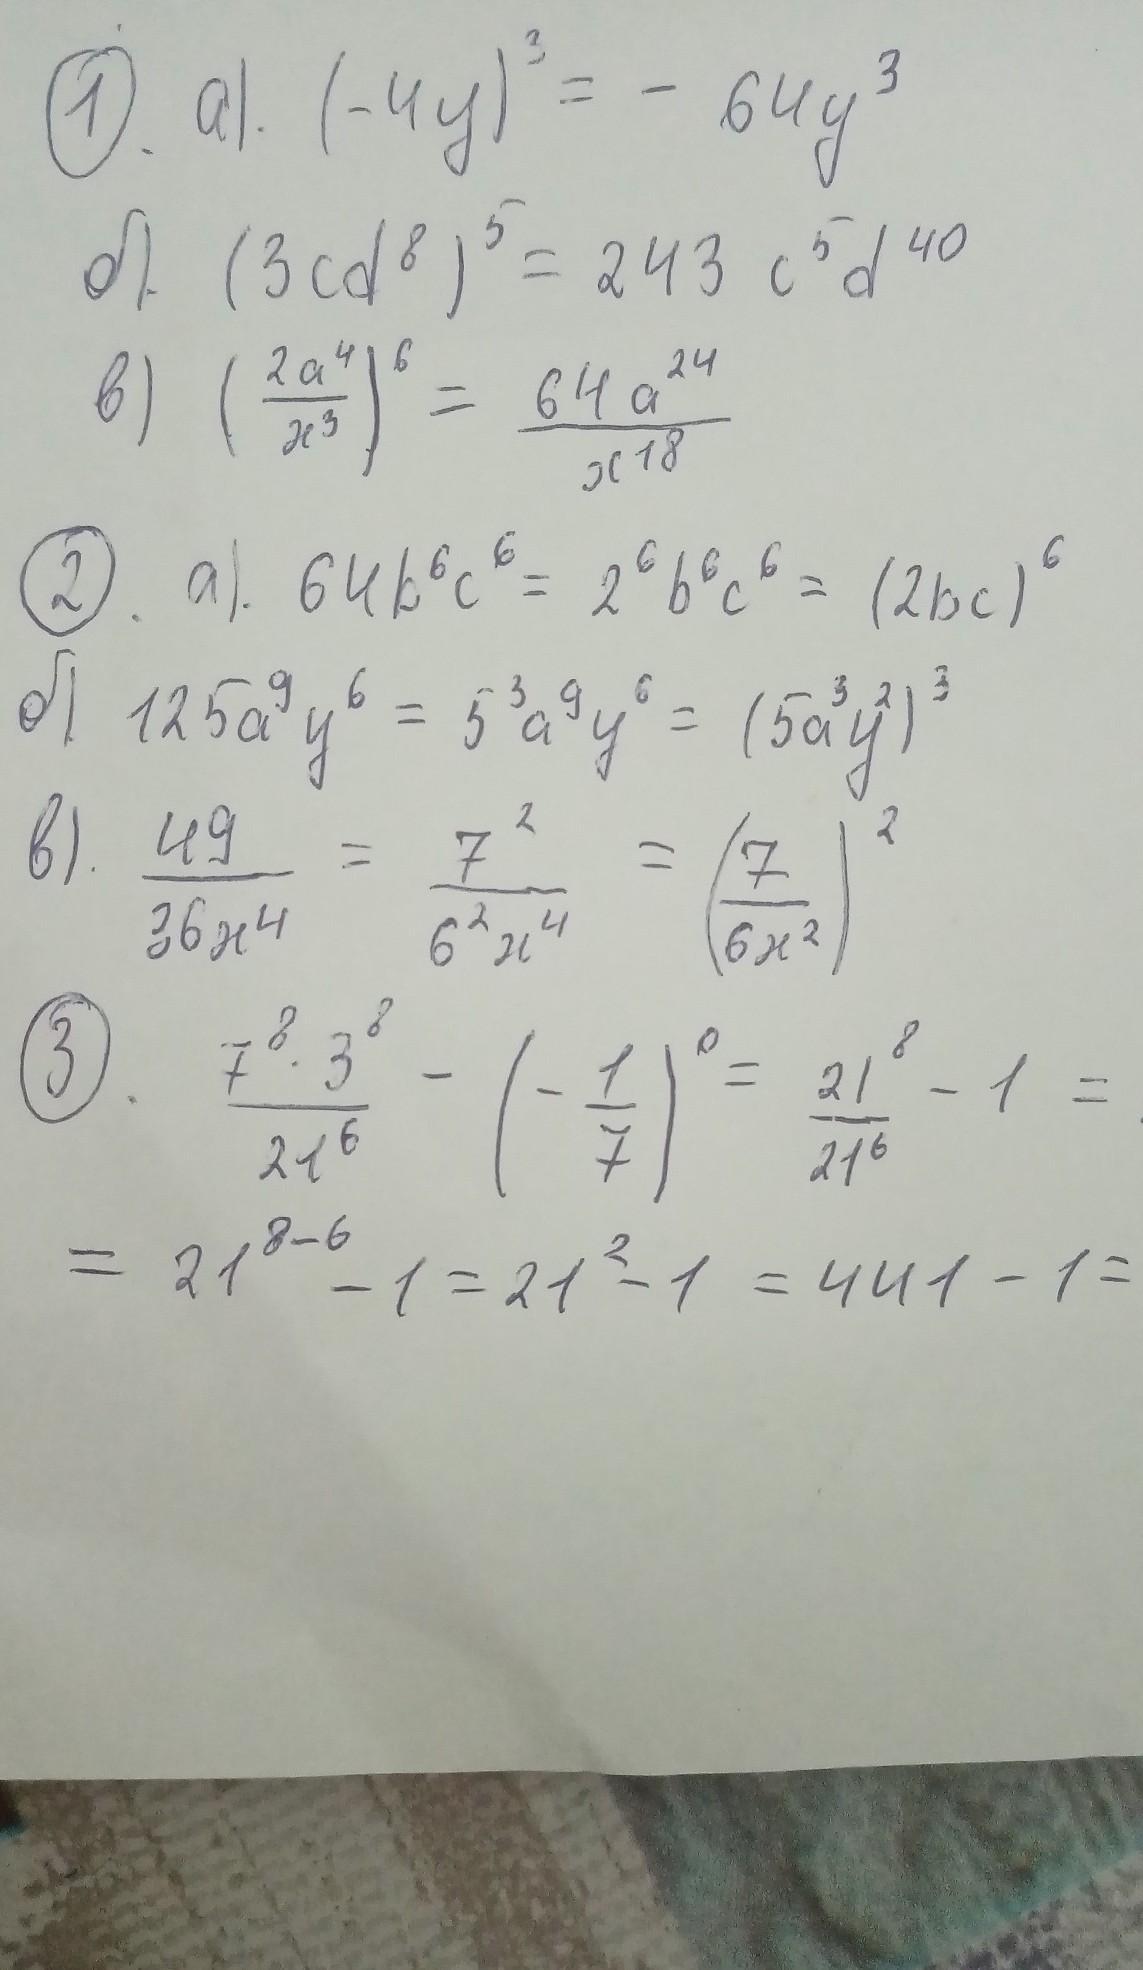 1. а). (-4y)³ = - 64y³
б). (3cd⁸)⁵ = 243 c⁵d⁴⁰
в) (2a⁴/x³)⁶ = 64a²⁴/x¹⁸
2. а). 64b⁶c⁶ = 2⁶b⁶c⁶ = (2bc)⁶
б) 125a⁹y⁶ = 5³a⁹y⁶ = (5a³y²)³
в). 49/36x⁴ = 7²/6²x⁴ = (7/6x²)²
3. 7⁸·3⁸/21⁶ - (-1/7)⁰ = 21⁸/21⁶ - 1 =
= 21⁸⁻⁶ - 1 = 21² - 1 = 441 - 1 =